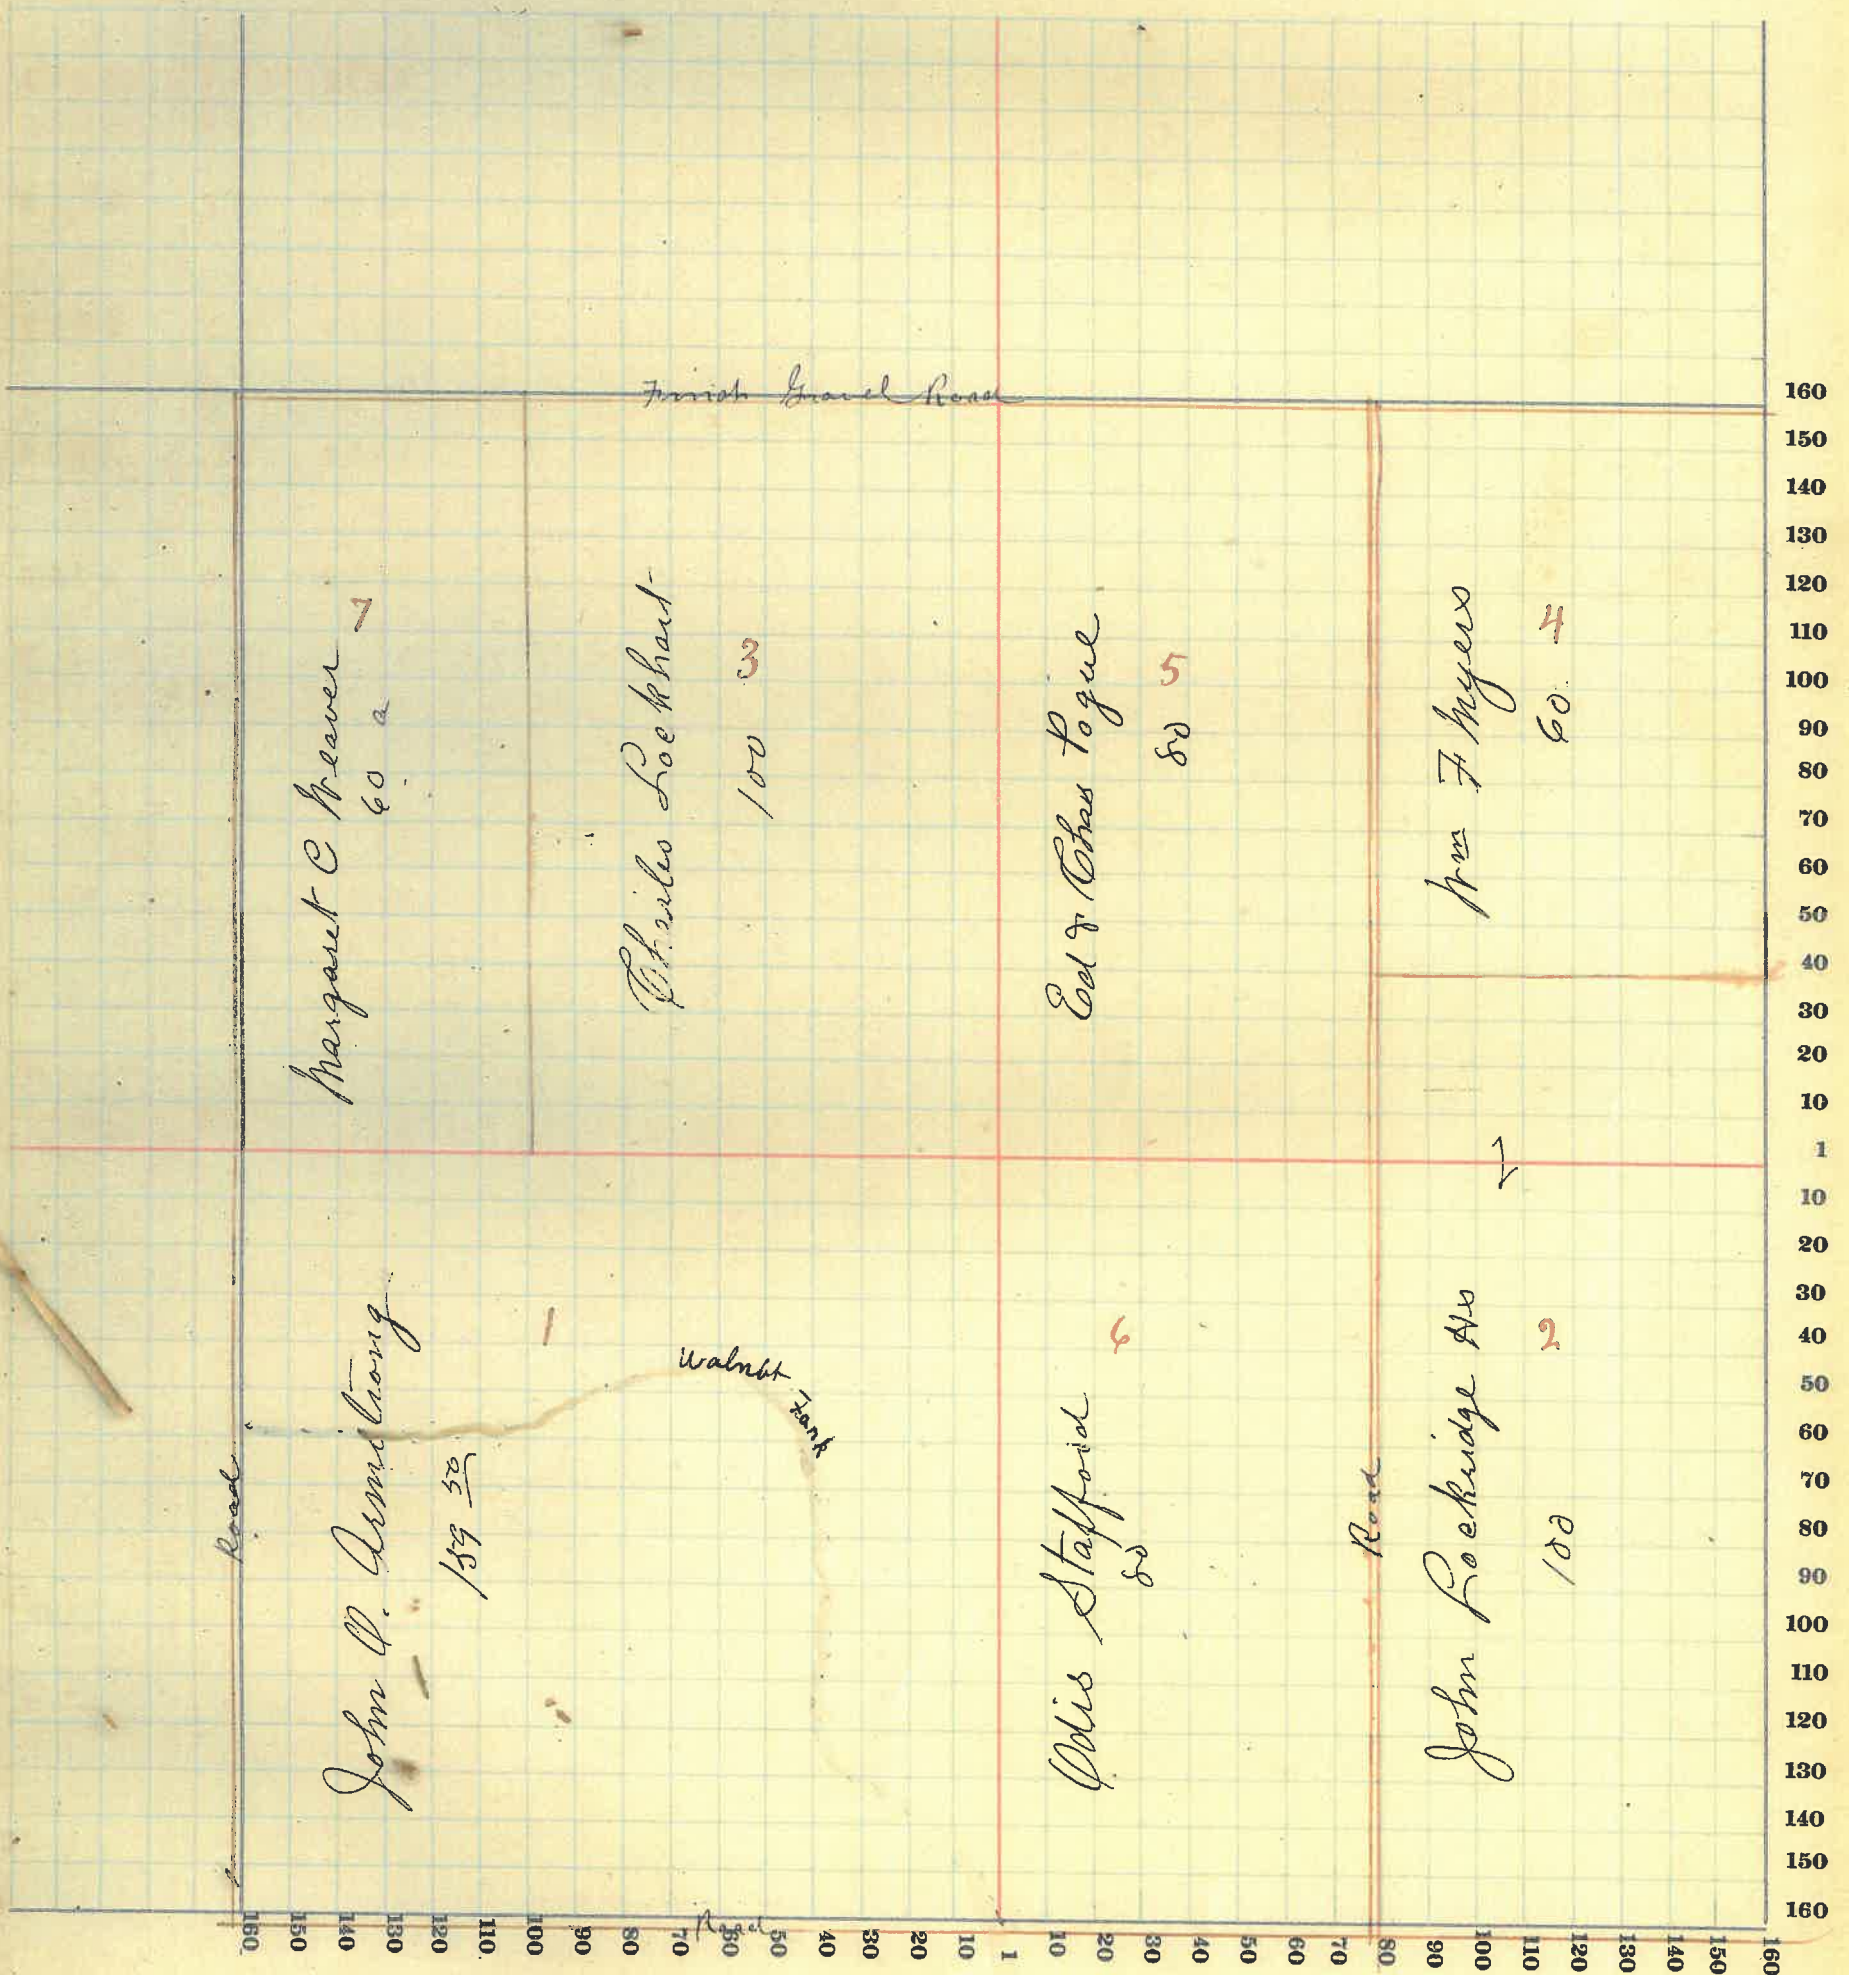 Finish Gravel Road
Margaret C Weaver
60 a
7
Chiles Lockhart
100
3
Ed & Chas Pogue
80
5
Wm F Myers
60
4
Road
John Q. Armstrong
159 50
1
Walnut
Fank
Odis Stafford
80
6
Road
John Lockridge Hs
100
2
Road
160
150
140
130
120
110
100
90
80
70
60
50
40
30
20
10
1
10
20
30
40
50
60
70
80
90
100
110
120
130
140
150
160
160 150 140 130 120 110 100 90 80 70 60 50 40 30 20 10 1 10 20 30 40 50 60 70 80 90 100 110 120 130 140 150 160